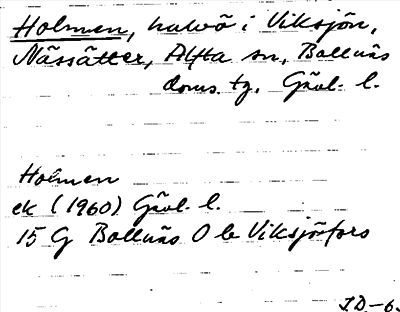 Holmen, halvö i Viksjön,
Nässätter, Alfta sn, Bollnäs
doms. tg. Gävl. l.
Holmen
ek (1960) Gävl. l.
15 G Bollnäs O b Viksjöfors
J.D.-6